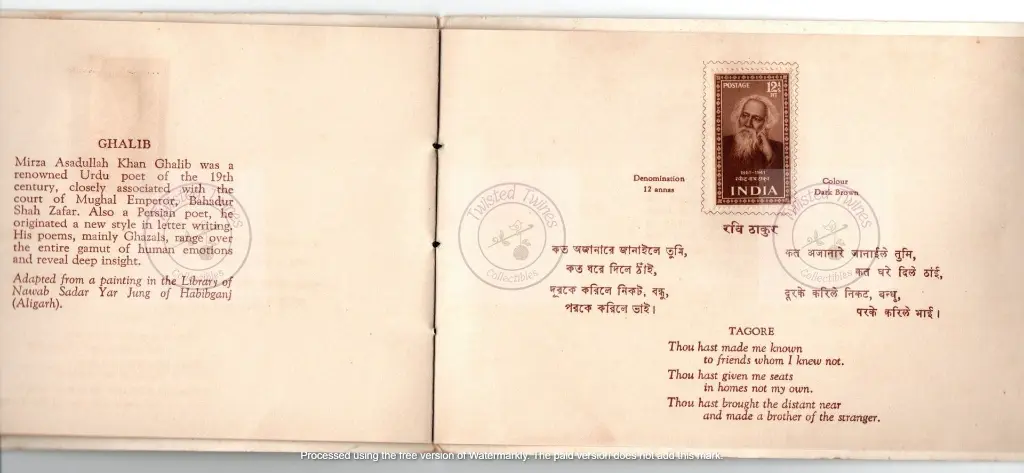 GHALIB
Mirza Asadullah Khan Ghalib was a
renowned Urdu poet of the 19th
century, closely associated with the
court of Mughal Emperor, Bahadur
Shah Zafar. Also a Persian poet, he
originated a new style in letter writing.
His poems, mainly Ghazals, range over
the entire gamut of human emotions
and reveal deep insight.
Adapted from a painting in the Library of
Nawab Sadar Yar Jung of Habibganj
(Aligarh).
POSTAGE
12As
1861-1941
INDIA
Denomination
12 annas
Colour
Dark Brown
रवि ठाकुर
কত অজানারে জানাইলে তুমি,
কত ঘরে দিলে ঠাঁই,
দূরকে করিলে নিকট, বন্ধু,
পরকে করিলে ভাই।
कत अजानारे जानाईले तुमि,
कत घरे दिले ठांई,
दूरके करिले निकट, बन्धु,
परके करिले भाई।
TAGORE
Thou hast made me known
to friends whom I knew not.
Thou hast given me seats
in homes not my own.
Thou hast brought the distant near
and made a brother of the stranger.
Twisted Twines
Collectibles
Twisted Twines
Collectibles
Twisted Twines
Collectibles
Processed using the free version of Watermarkly. The paid version does not add this mark.